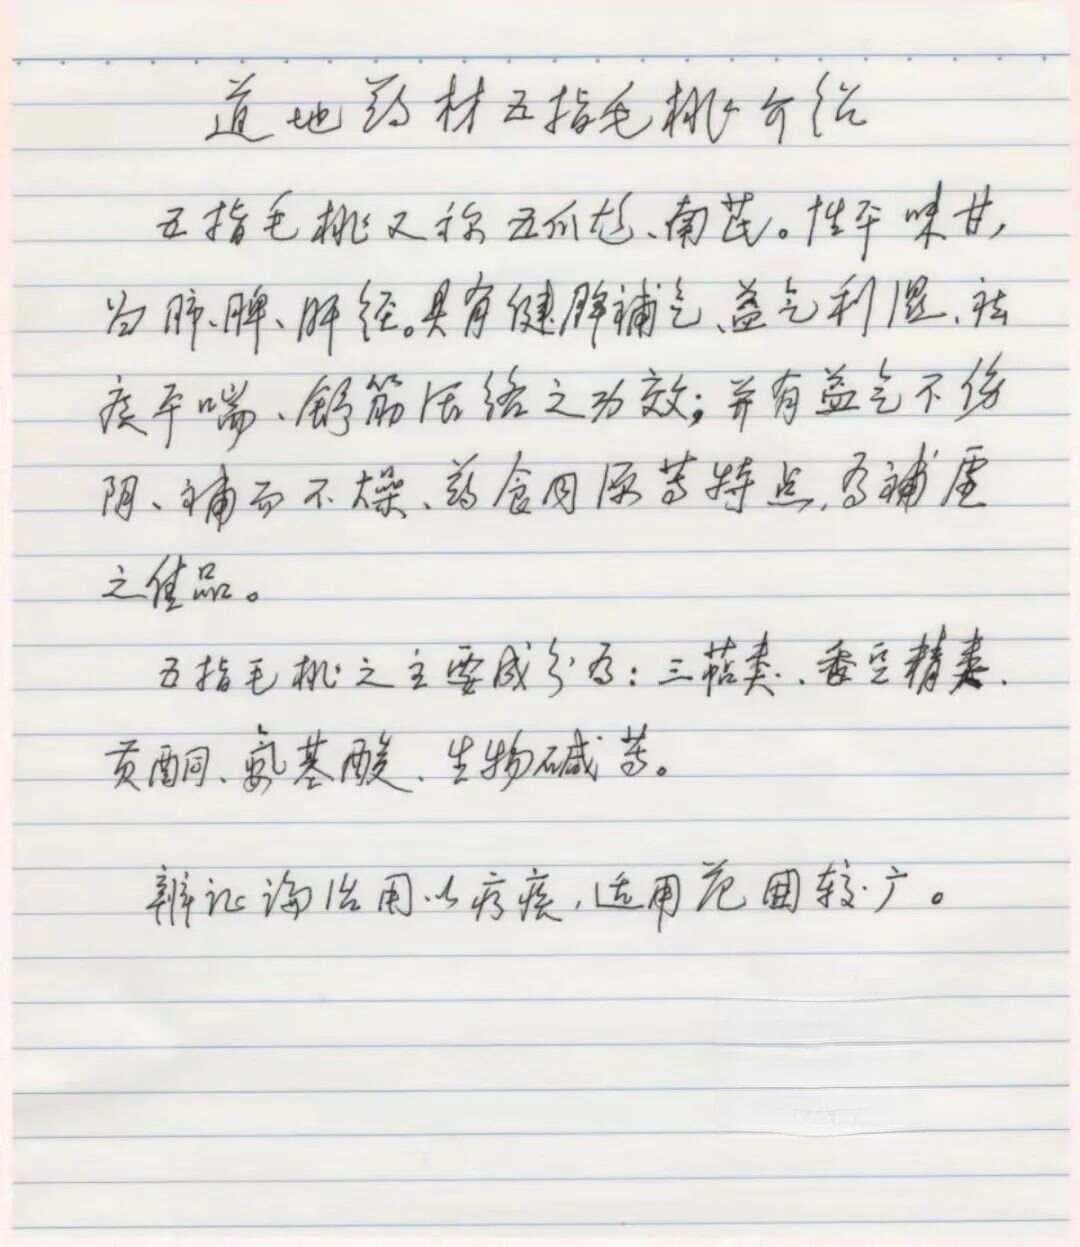 道地药材五指毛桃介绍
五指毛桃又称五爪龙、南芪。性平味甘,
为肺、脾、肝经。具有健脾补气、益气利湿、祛
痰平喘、舒筋活络之功效；并有益气不伤
阴、补而不燥、药食同源等特点,为补虚
之佳品。
五指毛桃之主要成分为：三萜类、香豆精类、
黄酮、氨基酸、生物碱等。
辨证论治用以疗疾,适用范围较广。